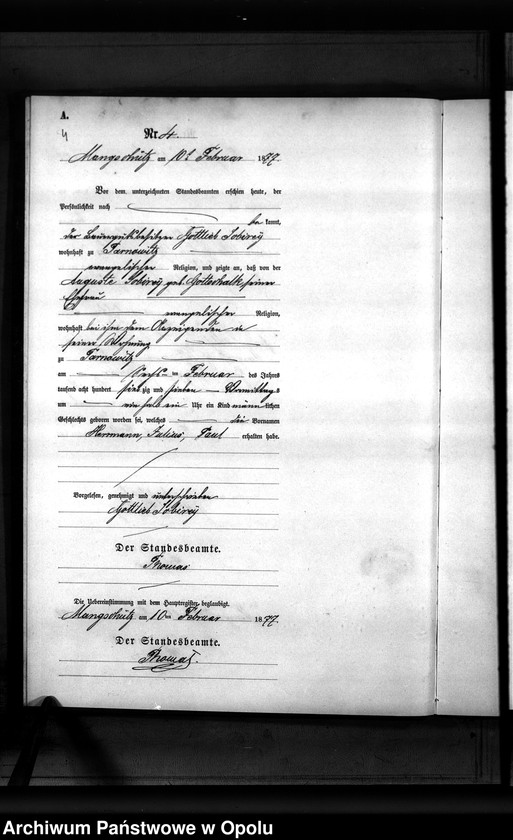 A.
4
Nr. 4.
Mangschütz am 10t Februar 1877.
Vor dem unterzeichneten Standesbeamten erschien heute, der
Persönlichkeit nach
be kannt,
der Bauergutsbesitzer Gottlieb Sobirey
wohnhaft zu Tarnowitz
evangelischer Religion, und zeigte an, daß von der
Auguste Sobirey geb. Gottschalk seiner
Ehefrau
evangelischer Religion,
wohnhaft bei ihm dem Anzeigenden in
seiner Wohnung
zu Tarnowitz
am Sechs ten Februar des Jahres
tausend acht hundert sieb zig und sieben Vormittags
um ein halb ein Uhr ein Kind männ lichen
Geschlechts geboren worden sei, welches die Vornamen
Hermann, Julius, Paul erhalten habe.
Vorgelesen, genehmigt und unterschrieben
Gottlieb Sobirey
Der Standesbeamte.
Thomas
Die Uebereinstimmung mit dem Hauptregister beglaubigt.
Mangschütz am 10ten Februar 1877.
Der Standesbeamte.
Thomas.
Archiwum Państwowe w Opolu